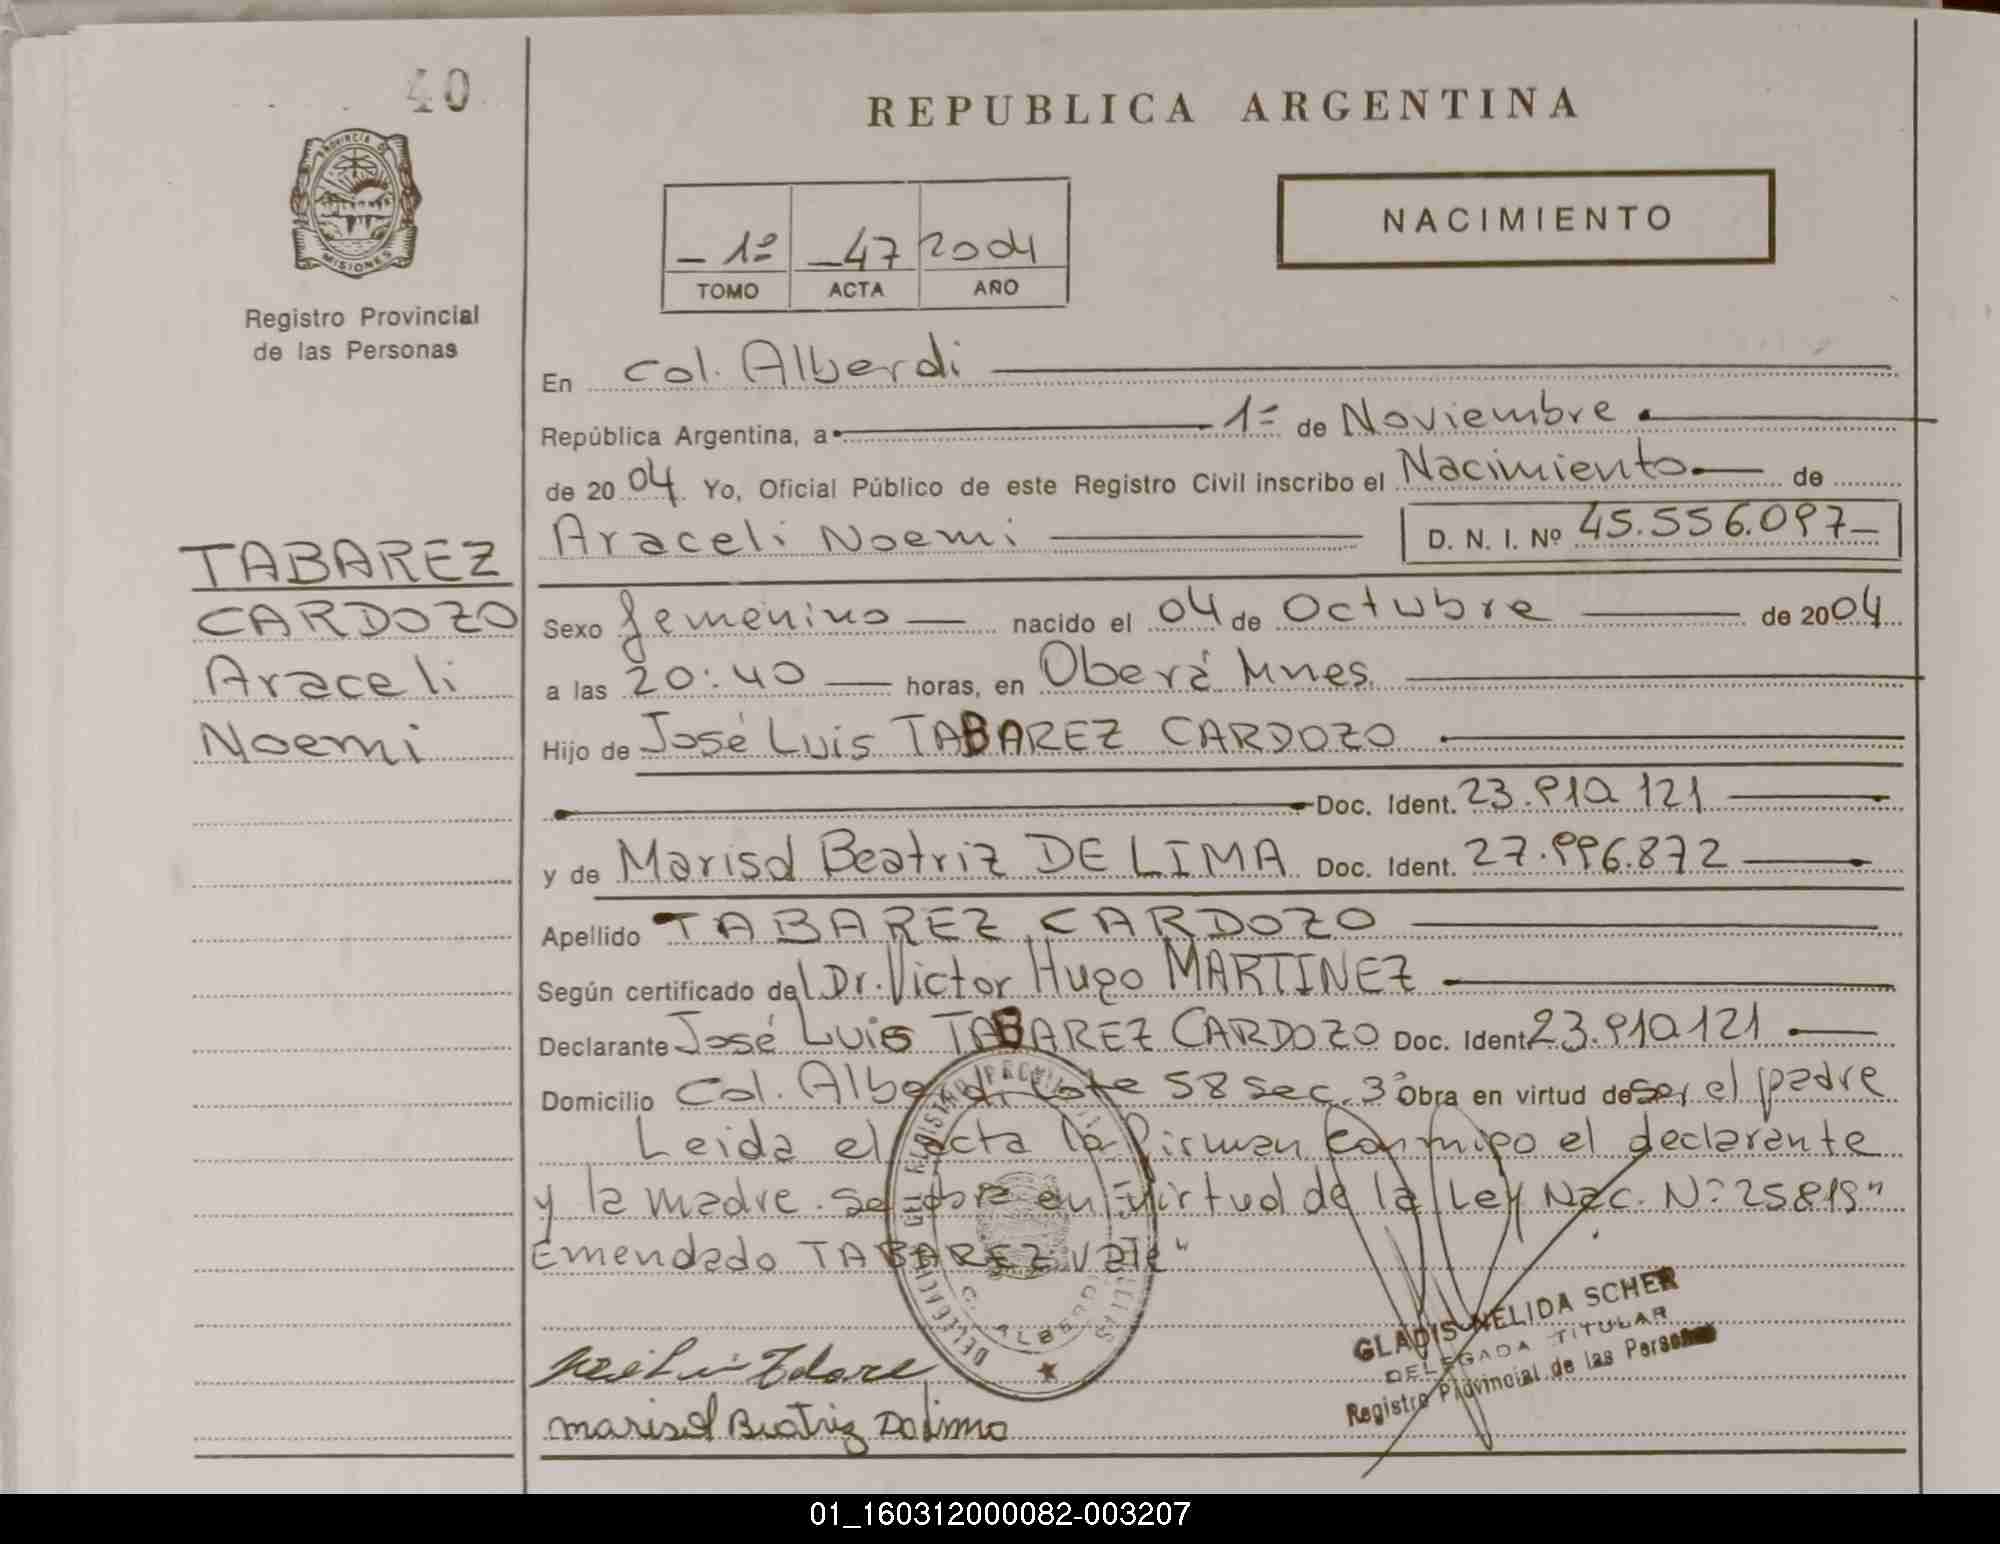 40
REPUBLICA ARGENTINA
PROVINCIA DE
MISIONES
Registro Provincial
de las Personas
NACIMIENTO
- 1º -47 2004
TOMO ACTA AÑO
En Col. Alberdi
República Argentina, a 1º de Noviembre
de 2004. Yo, Oficial Público de este Registro Civil inscribo el Nacimiento de
Araceli Noemi D. N. I. Nº 45.556.097
TABAREZ
CARDOZO
Araceli
Noemi
Sexo femenino nacido el 04 de Octubre de 2004
a las 20:40 horas, en Oberá Mnes.
Hijo de José Luis TABAREZ CARDOZO
Doc. Ident. 23.910.121
y de Marisol Beatriz DE LIMA Doc. Ident. 27.996.872
Apellido TABAREZ CARDOZO
Según certificado del Dr. Victor Hugo MARTINEZ
Declarante José Luis TABAREZ CARDOZO Doc. Ident. 23.910.121
Domicilio Col. Alberdi Lote 58 Sec. 3º Obra en virtud de ser el padre
Leida el acta la firman conmigo el declarante
y la madre. Se obra en virtud de la Ley Nac. Nº 25819"
Emendado TABAREZ Vale"
C. ALBERDI
GLADIS NELIDA SCHER
DELEGADA TITULAR
Registro Provincial de las Personas
marisol Beatriz De lima
01_160312000082-003207